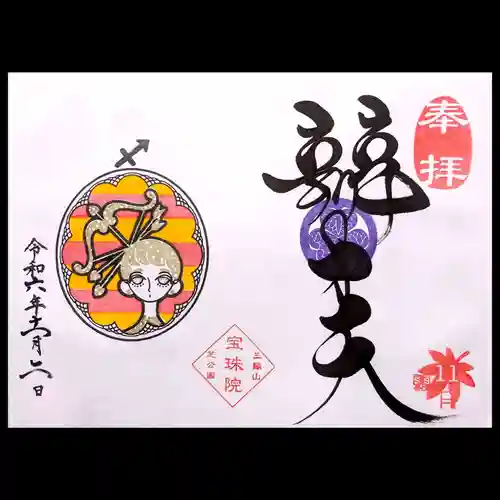 奉拝
辨天
11月
三縁山
宝珠院
芝公園
令和六年十一月六日